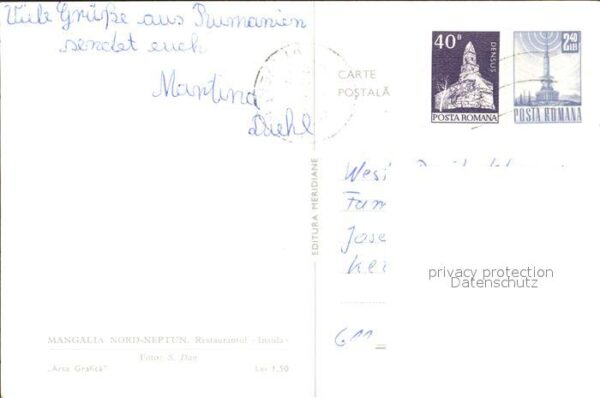 Viele Grüße aus Rumänien
sendet euch
Martina
Diehl
CARTE
POȘTALĂ
40 B
DENSUS
POSTA ROMANA
2,40
LEI
POSTA ROMANA
EDITURA MERIDIANE
West
Fam
Jose
privacy protection
Datenschutz
MANGALIA NORD-NEPTUN. Restaurantul «Insula»
Foto: S. Dan
„Arta Grafică" Lei 1,50